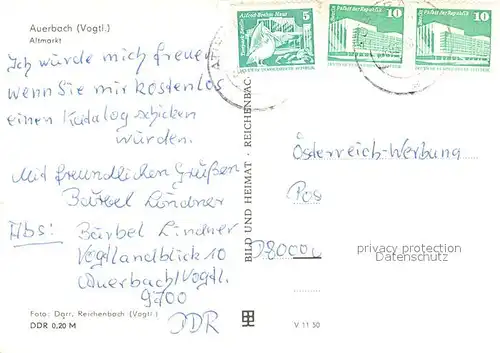 Auerbach (Vogtl.)
Altmarkt
Ich würde mich freuen
wenn Sie mir kostenlos
einen Katalog schicken
würden.
Mit freundlichen Grüßen
Bärbel Lindner
Abs: Bärbel Lindner
Vogtlandblick 10
Auerbach/Vogtl.
9700
DDR
Foto: Darr, Reichenbach (Vogtl.)
DDR 0,20 M
BILD UND HEIMAT · REICHENBAC
V 11 50
5
Alfred-Brehm-Haus
10
Palast der Republik
10
Palast der Republik
Österreich-Werbung
Pos
D8000
privacy protection
Datenschutz